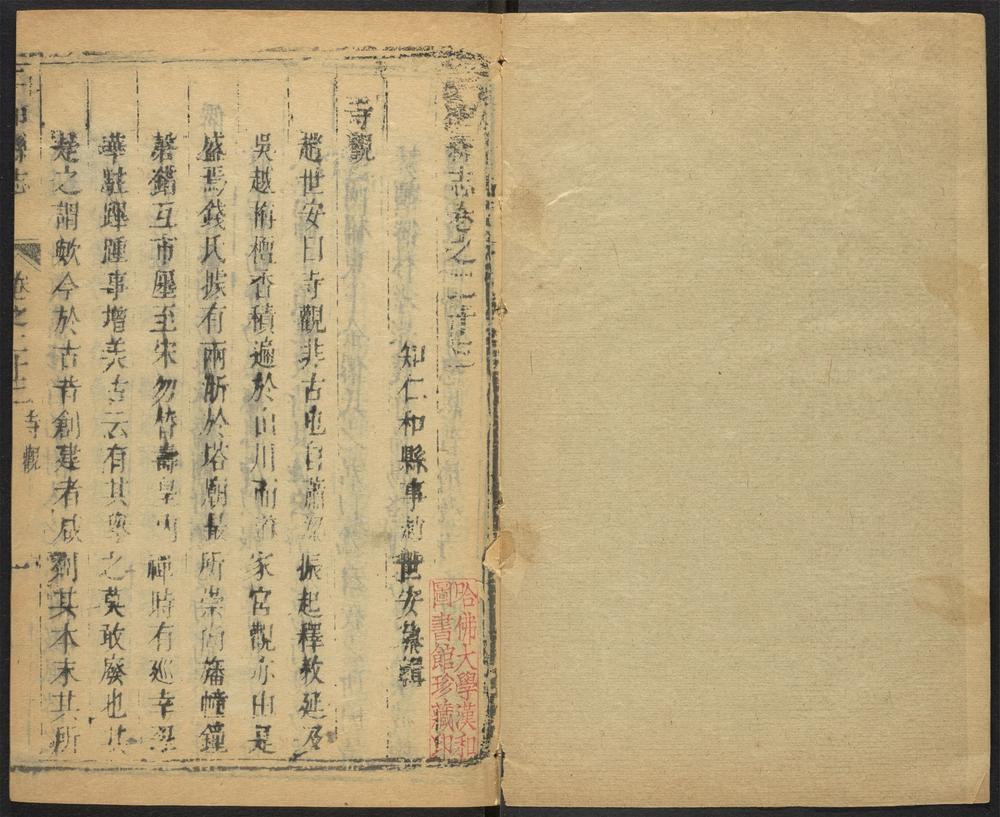 縣志卷之二十
知仁和縣事趙世安纂輯
寺觀
趙世安曰寺觀其古也自蕭梁振起釋教延及
吳越栴檀香積遍於山川而道家宮觀亦由是
盛焉錢氏據有兩浙於塔廟最所崇尚旛幢鐘
磬錯互市壥至宋勿替壽皇內禪時有巡幸翠
華駐蹕踵事增美古云有其舉之莫敢廢也其
是之謂歟今於古者創建者咸列其本末其所
仁和縣志
卷之二十
寺觀
一
哈佛大學漢和
圖書館珍藏印